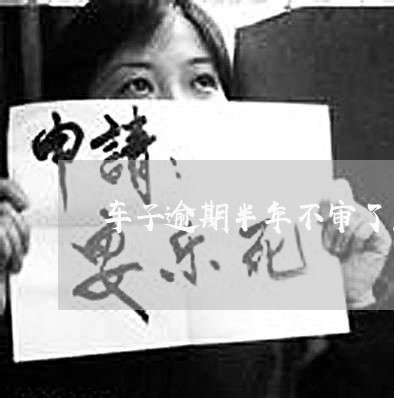 申請：
车子逾期半年不审了
要乐死